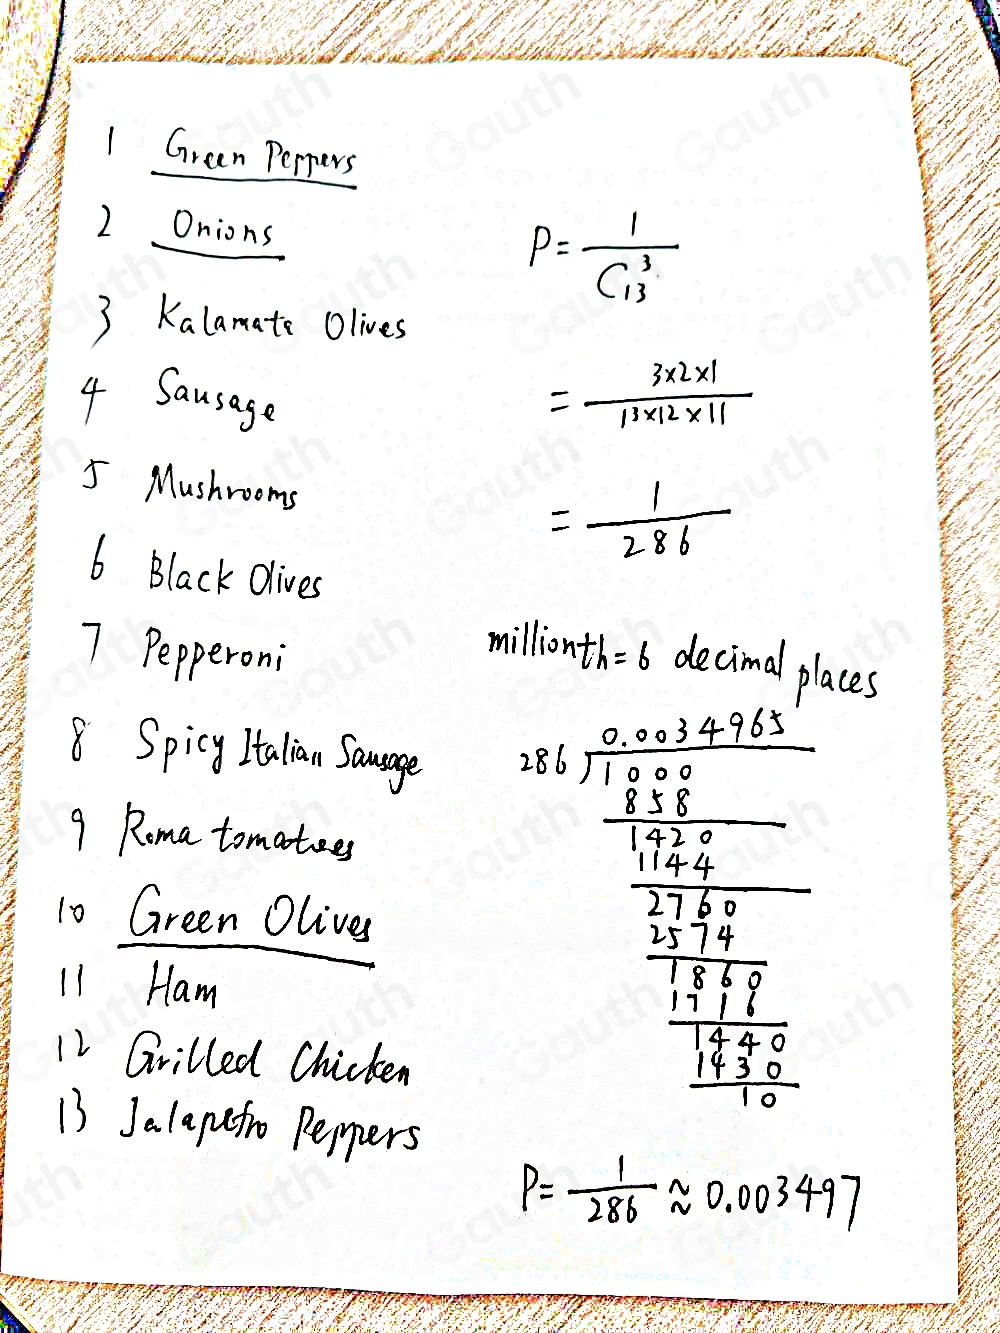 1 Green Peppers
2 Onions
3 Kalamata Olives
4 Sausage
5 Mushrooms
6 Black Olives
7 Pepperoni
8 Spicy Italian Sausage
9 Roma tomatoes
10 Green Olives
11 Ham
12 Grilled Chicken
13 Jalapeño Peppers
P = 1 / C₁₃³
= 3×2×1 / 13×12×11
= 1 / 286
millionth = 6 decimal places
0.0034965
286 ) 1000
858
1420
1144
2760
2574
1860
1716
1440
1430
10
P = 1 / 286 ≈ 0.003497
Gauth